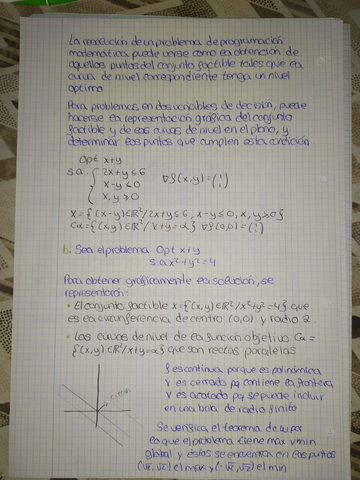 La resolución de un problema de programación
matemática puede verse como la obtención de
aquellos puntos del conjunto factible tales que la
curva de nivel correspondiente tenga un nivel
óptimo
Para problemas en dos variables de decisión, puede
hacerse la representación gráfica del conjunto
factible y de las curvas de nivel en el plano, y
determinar los puntos que cumplen esta condición
Opt x+y
s.a. { 2x+y≤6
x-y≤0
x,y≥0
∇f(x,y)=(1 1)
X={(x-y)∈ℝ²/2x+y≤6, x-y≤0, x,y≥0}
Cα={(x,y)∈ℝ²/x+y=α} ∇f(0,0)=(1 1)
b. Sea el problema Opt x+y
s.a x²+y²=4
Para obtener gráficamente la solución, se
representará:
• El conjunto factible X={(x,y)∈ℝ²/x²+y²=4} que
es la circunferencia de centro (0,0) y radio 2
• Las curvas de nivel de la función objetivo Cα=
{(x,y)∈ℝ²/x+y=α} que son rectas paralelas
f es continua porque es polinómica
X es cerrado pq contiene la frontera
X es acotado pq se puede incluir
en una bola de radio finito
Se verifica el teorema de W por
lo que el problema tiene max y min
global y éstos se encuentran en los puntos
(√2,√2) el max y (-√2,√2) el min